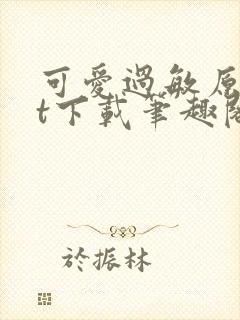 可愛過敏原
t下載筆趣閣
於振林